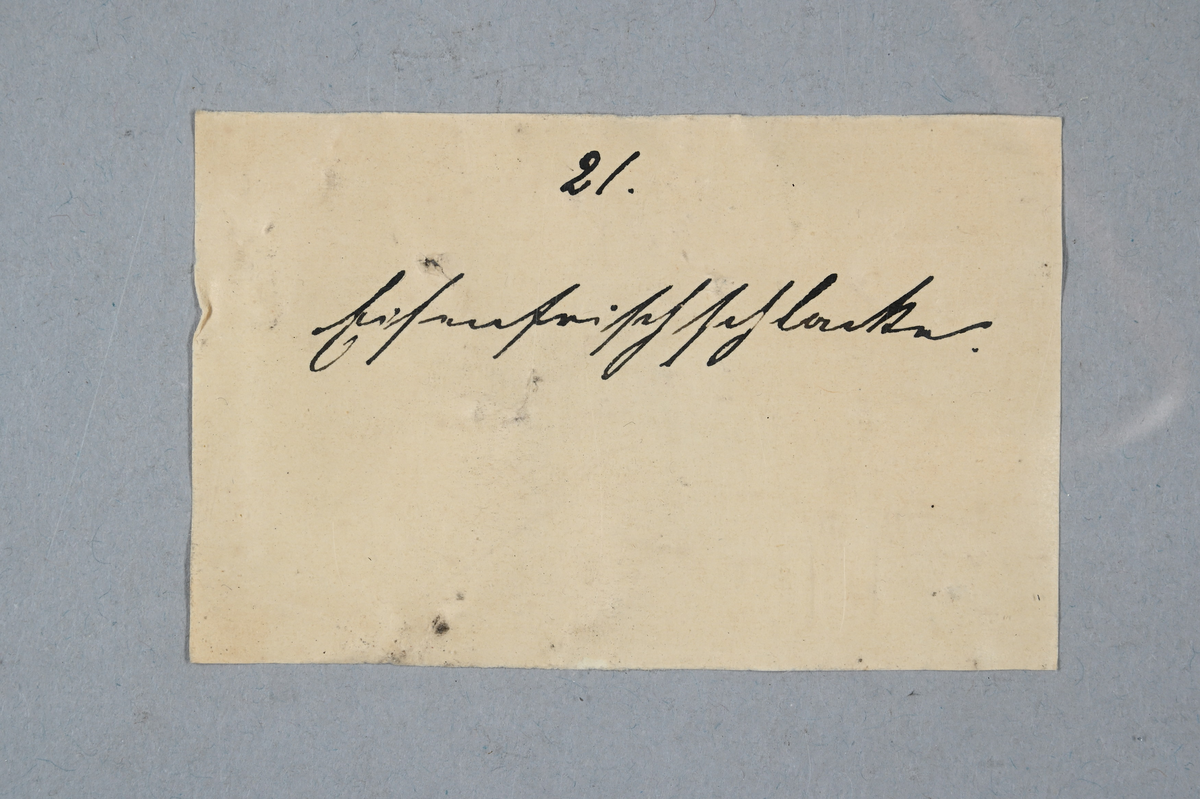 21.
Eisenfrischschlacke.